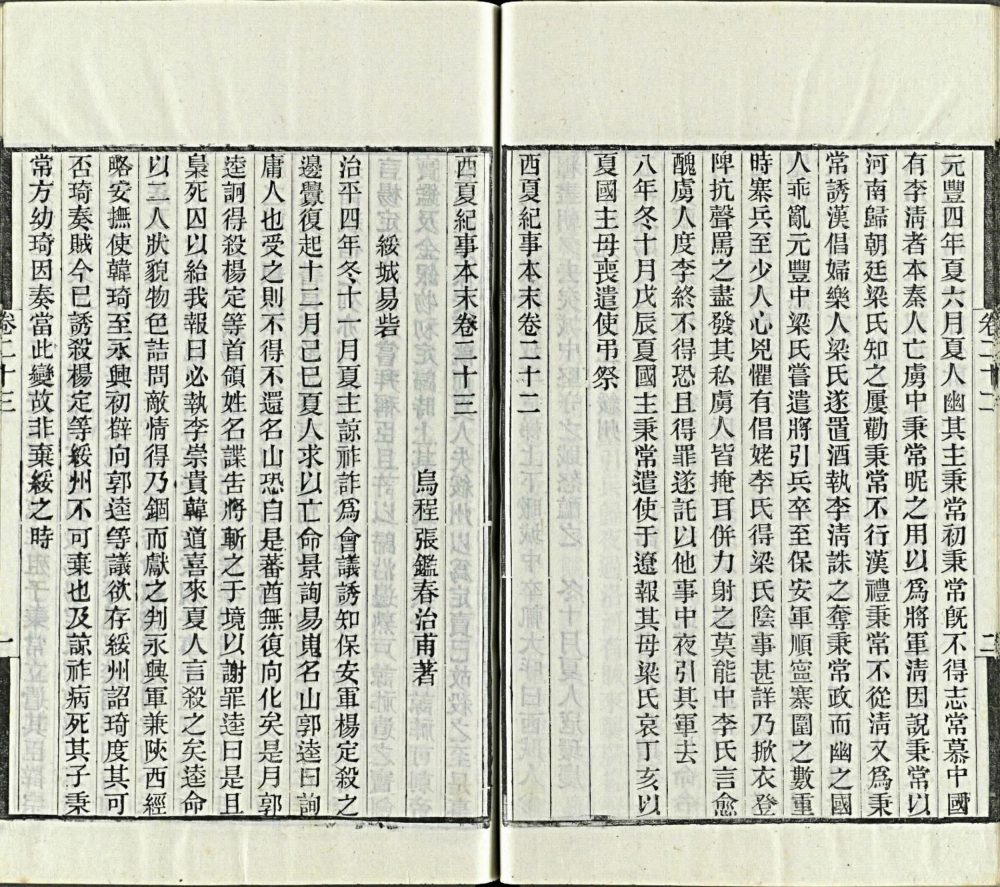 元豐四年夏六月夏人幽其主秉常初秉常旣不得志常慕中國
有李淸者本秦人亡虜中秉常昵之用以爲將軍淸因說秉常以
河南歸朝廷梁氏知之屢勸秉常不行漢禮秉常不從淸又爲秉
常誘漢倡婦樂人梁氏遂置酒執李淸誅之奪秉常政而幽之國
人乖亂元豐中梁氏嘗遣將引兵卒至保安軍順寧寨圍之數重
時寨兵至少人心兇懼有倡姥李氏得梁氏陰事甚詳乃掀衣登
陴抗聲罵之盡發其私虜人皆掩耳併力射之莫能中李氏言愈
醜虜人度李終不得恐且得罪遂託以他事中夜引其軍去
八年冬十月戊辰夏國主秉常遣使于遼報其母梁氏哀丁亥以
夏國主母喪遣使弔祭
西夏紀事本末卷二十二
卷二十二
二
西夏紀事本末卷二十三
烏程張鑑春治甫著
綏城易砦
治平四年冬十一月夏主諒祚詐爲會議誘知保安軍楊定殺之
邊釁復起十二月己巳夏人求以亡命景詢易嵬名山郭逵曰詢
庸人也受之則不得不還名山恐自是蕃酋無復向化矣是月郭
逵詗得殺楊定等首領姓名諜告將斬之于境以謝罪逵曰是且
梟死囚以紿我報曰必執李崇貴韓道喜來夏人言殺之矣逵命
以二人狀貌物色詰問敵情得乃錮而獻之判永興軍兼陝西經
略安撫使韓琦至永興初辟向郭逵等議欲存綏州詔琦度其可
否琦奏賊今已誘殺楊定等綏州不可棄也及諒祚病死其子秉
常方幼琦因奏當此變故非棄綏之時
卷二十三
一